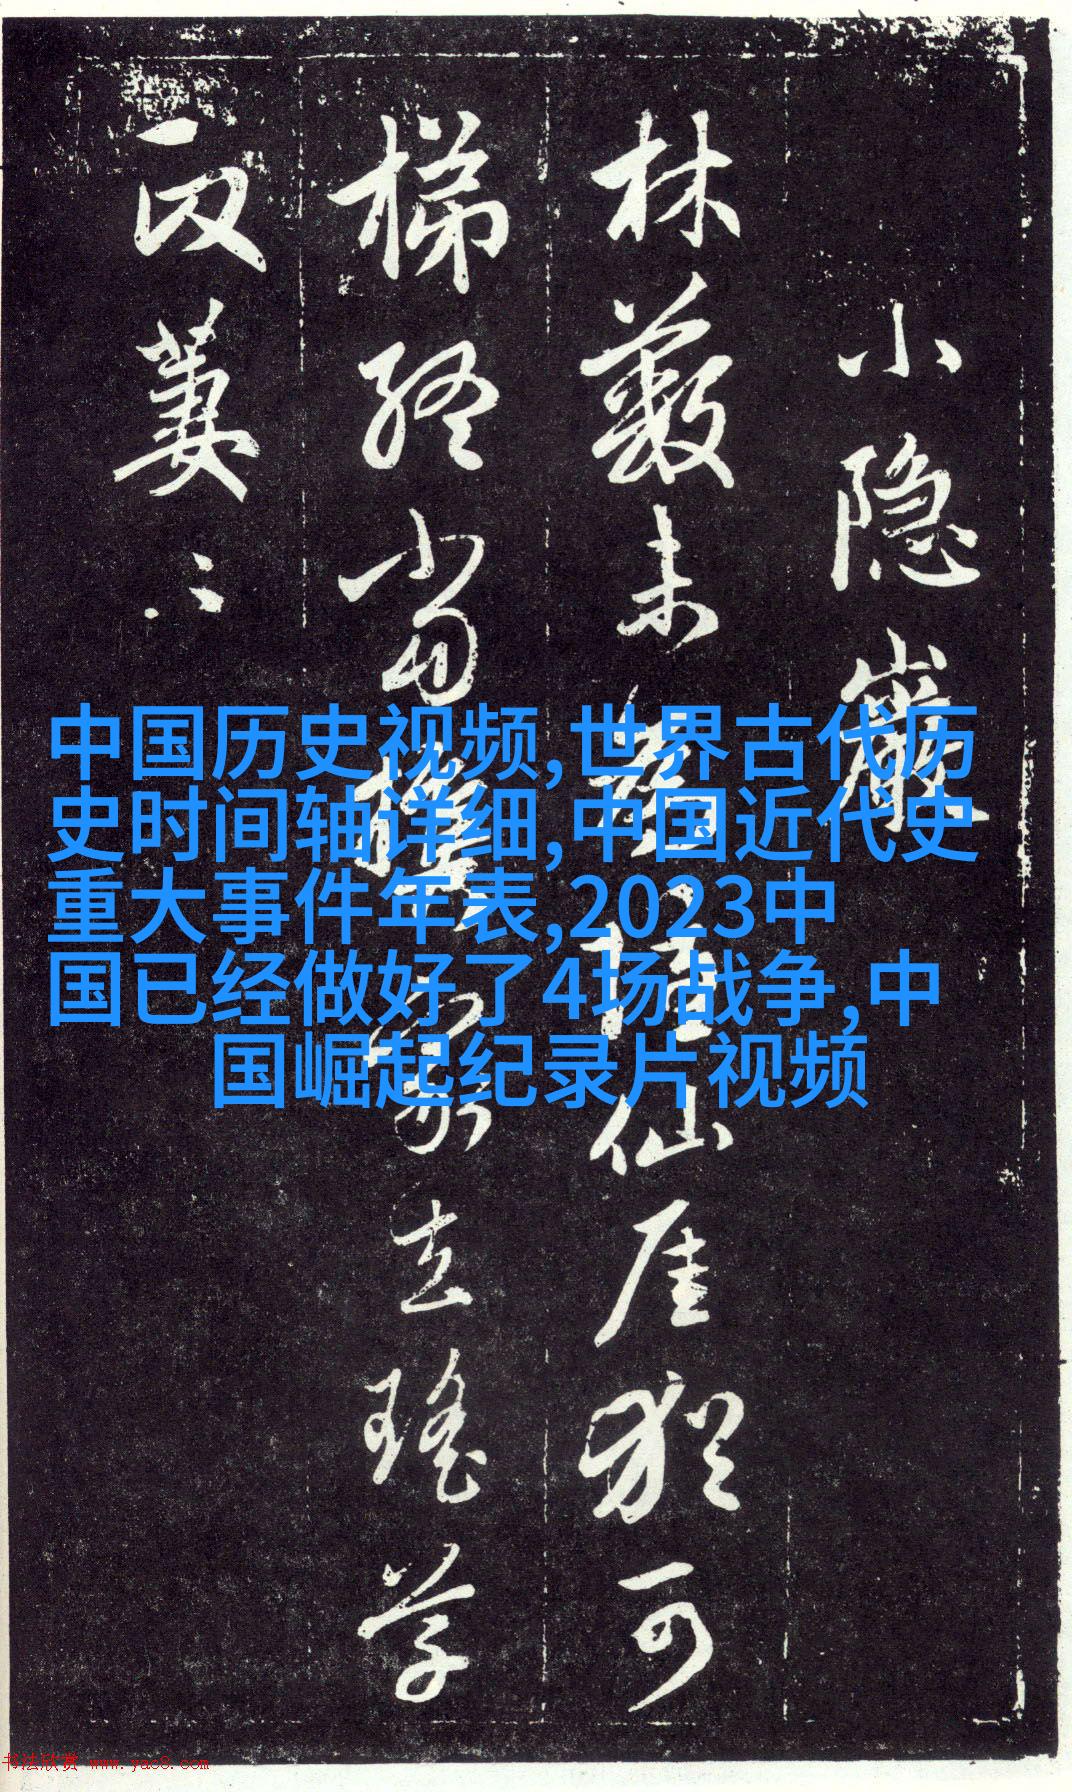 小隐巖
林薮未仙厓猶可
梯終当攜家去瑶草
政萋〻
中国历史视频,世界古代历
史时间轴详细,中国近代史
重大事件年表,2023中
国已经做好了4场战争,中
国崛起纪录片视频
书法欣赏 www.yac8.com